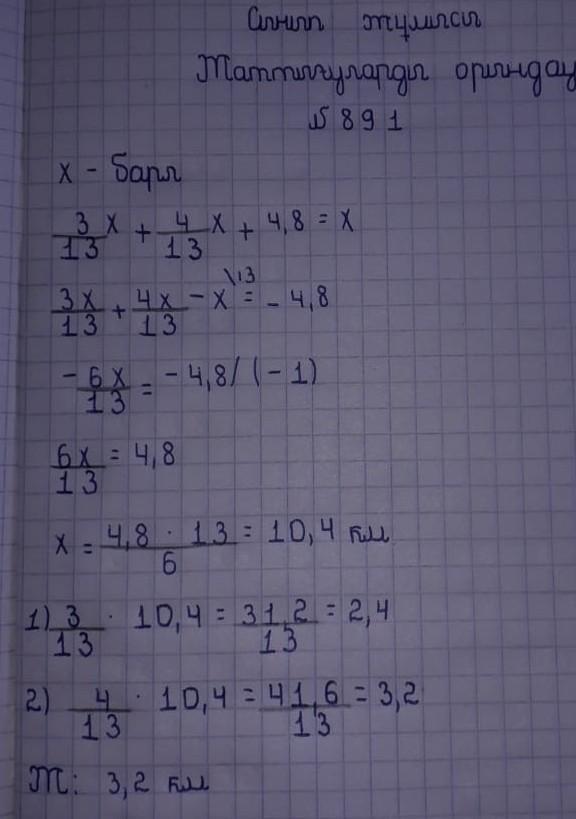 Сынып жұмысы
Жаттығуларды орындау
№ 891
x - бары
3/13 x + 4/13 x + 4,8 = x
3x/13 + 4x/13 - x \13 = - 4,8
- 6x/13 = - 4,8 / (- 1)
6x/13 = 4,8
x = 4,8 · 13 / 6 = 10,4 км
1) 3/13 · 10,4 = 31,2/13 = 2,4
2) 4/13 · 10,4 = 41,6/13 = 3,2
Ж: 3,2 км